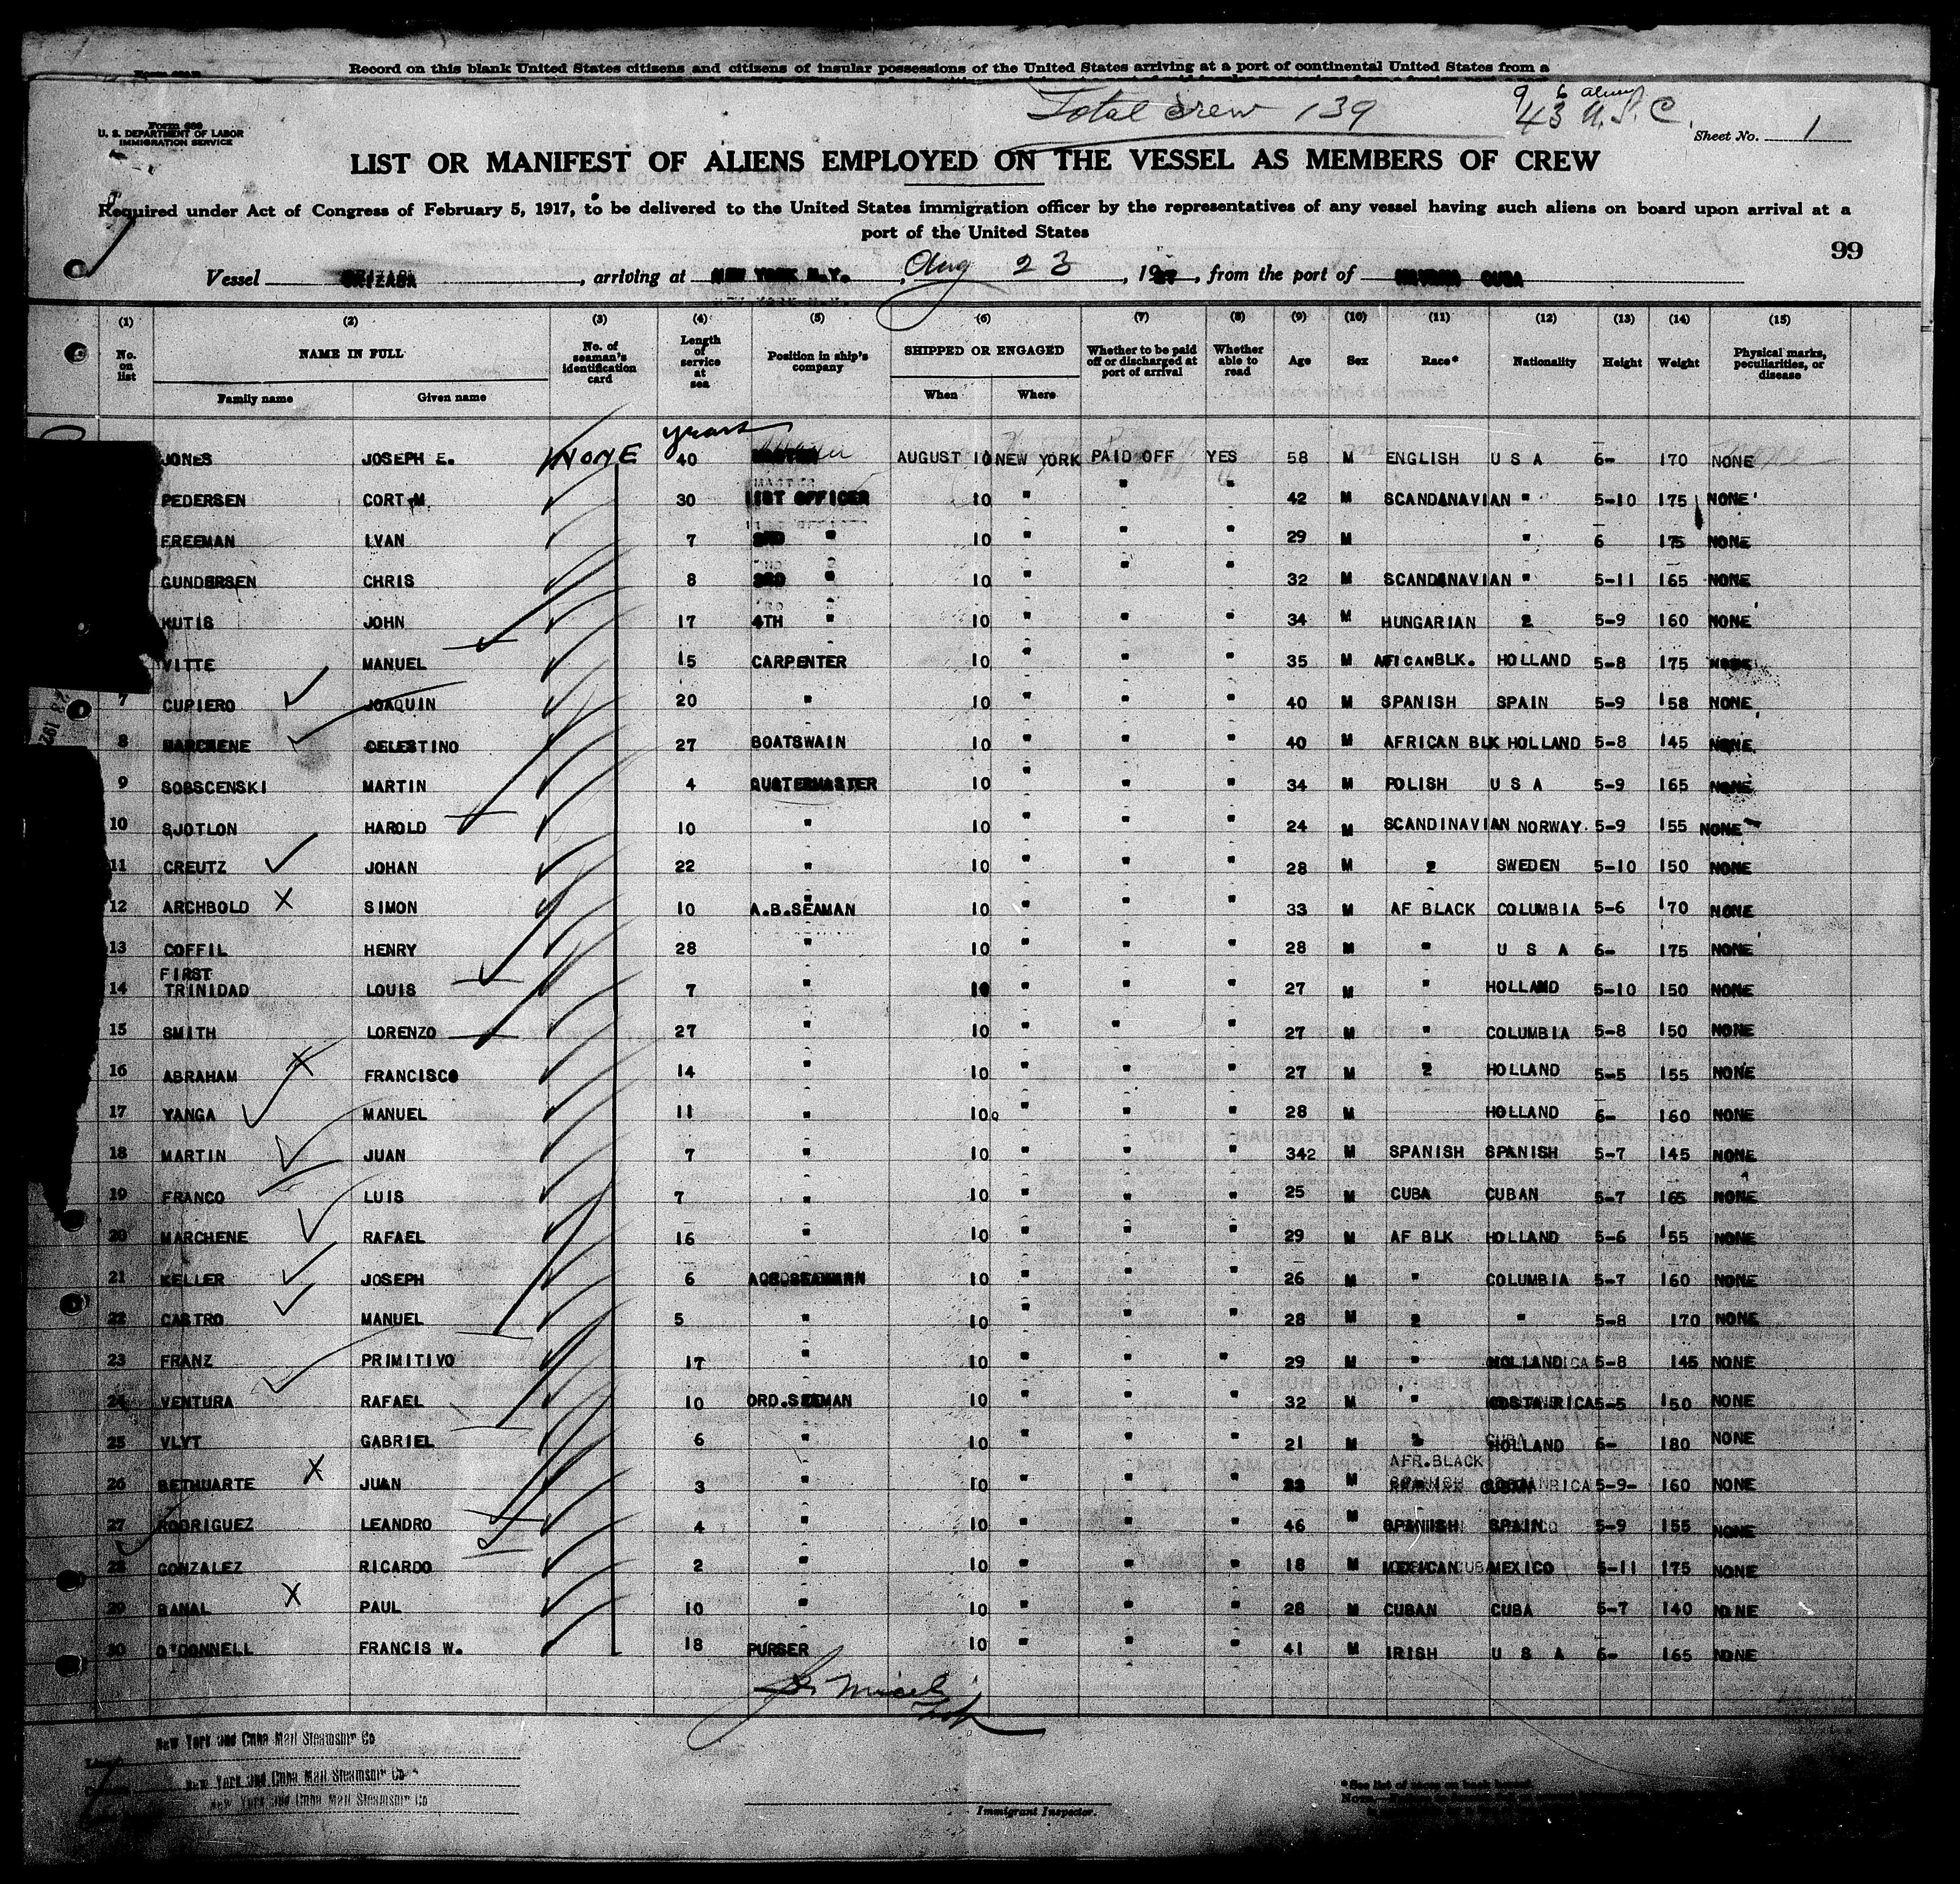 Record on this blank United States citizens and citizens of insular possessions of the United States arriving at a port of continental United States from a
Total crew 139
9 6 aliens
43 U.S.C.
Form 689
U. S. DEPARTMENT OF LABOR
IMMIGRATION SERVICE
Sheet No. 1
LIST OR MANIFEST OF ALIENS EMPLOYED ON THE VESSEL AS MEMBERS OF CREW
Required under Act of Congress of February 5, 1917, to be delivered to the United States immigration officer by the representatives of any vessel having such aliens on board upon arrival at a
port of the United States
99
Vessel ORIZABA, arriving at NEW YORK N.Y., Aug 23, 19, from the port of HAVANA CUBA
(1) (2) (3) (4) (5) (6) (7) (8) (9) (10) (11) (12) (13) (14) (15)
No. on list NAME IN FULL Family name Given name No. of seaman's identification card Length of service at sea Position in ship's company SHIPPED OR ENGAGED When Where Whether to be paid off or discharged at port of arrival Whether able to read Age Sex Race* Nationality Height Weight Physical marks, peculiarities, or disease
years
JONES JOSEPH E. NONE 40 AUGUST 10 NEW YORK PAID OFF YES 58 M ENGLISH U S A 6- 170 NONE
PEDERSEN CORT M. 30 1IST OFFICER 10 " " " 42 M SCANDANAVIAN " 5-10 175 NONE
FREEMAN IVAN 7 " 10 " " " 29 M " 6 175 NONE
GUNDERSEN CHRIS 8 " 10 " " " 32 M SCANDANAVIAN " 5-11 165 NONE
KUTIS JOHN 17 4TH " 10 " " " 34 M HUNGARIAN 2 5-9 160 NONE
VITTE MANUEL 15 CARPENTER 10 " " " 35 M AFICANBLK. HOLLAND 5-8 175 NONE
7 CUPIERO JOAQUIN 20 " 10 " " " 40 M SPANISH SPAIN 5-9 158 NONE
8 MARCHENE CELESTINO 27 BOATSWAIN 10 " " " 40 M AFRICAN BLK HOLLAND 5-8 145 NONE
9 SOBSCENSKI MARTIN 4 QUATERMASTER 10 " " " 34 M POLISH U S A 5-9 165 NONE
10 SJOTLON HAROLD 10 " 10 " " " 24 M SCANDINAVIAN NORWAY. 5-9 155 NONE
11 CREUTZ JOHAN 22 " 10 " " " 28 M 2 SWEDEN 5-10 150 NONE
12 ARCHBOLD SIMON 10 A.B.SEAMAN 10 " " " 33 M AF BLACK COLUMBIA 5-6 170 NONE
13 COFFIL HENRY 28 " 10 " " " 28 M " U S A 6- 175 NONE
FIRST
14 TRINIDAD LOUIS 7 " 10 " " " 27 M " HOLLAND 5-10 150 NONE
15 SMITH LORENZO 27 " 10 " " " 27 M " COLUMBIA 5-8 150 NONE
16 ABRAHAM FRANCISCO 14 " 10 " " " 27 M 2 HOLLAND 5-5 155 NONE
17 YANGA MANUEL 11 " 10 " " " 28 M HOLLAND 6- 160 NONE
18 MARTIN JUAN 7 " 10 " " " 342 M SPANISH SPANISH 5-7 145 NONE
19 FRANCO LUIS 7 " 10 " " " 25 M CUBA CUBAN 5-7 165 NONE
20 MARCHENE RAFAEL 16 " 10 " " " 29 M AF BLK HOLLAND 5-6 155 NONE
21 KELLER JOSEPH 6 10 " " " 26 M " COLUMBIA 5-7 160 NONE
22 CASTRO MANUEL 5 " 10 " " " 28 M 2 " 5-8 170 NONE
23 FRANZ PRIMITIVO 17 " 10 " " " 29 M " HOLLAND 5-8 145 NONE
24 VENTURA RAFAEL 10 ORD.SEEMAN 10 " " " 32 M " COSTA RICA 5-5 150 NONE
25 VLYT GABRIEL 6 " 10 " " " 21 M HOLLAND 6- 180 NONE
AFR.BLACK
26 BETHUARTE JUAN 3 " 10 " " " M 5-9- 160 NONE
27 RODRIGUEZ LEANDRO 4 " 10 " " " 46 M SPANISH SPAIN 5-9 155 NONE
28 GONZALEZ RICARDO 2 " 10 " " " 18 M MEXICAN MEXICO 5-11 175 NONE
29 BANAL PAUL 10 " 10 " " " 28 M CUBAN CUBA 5-7 140 NONE
30 O'DONNELL FRANCIS W. 18 PURSER 10 " " " 41 M IRISH U S A 6- 165 NONE
New York and Cuba Mail Steamship Co
New York and Cuba Mail Steamship Co
New York and Cuba Mail Steamship Co
Immigrant Inspector.
*See list of races on back hereof.